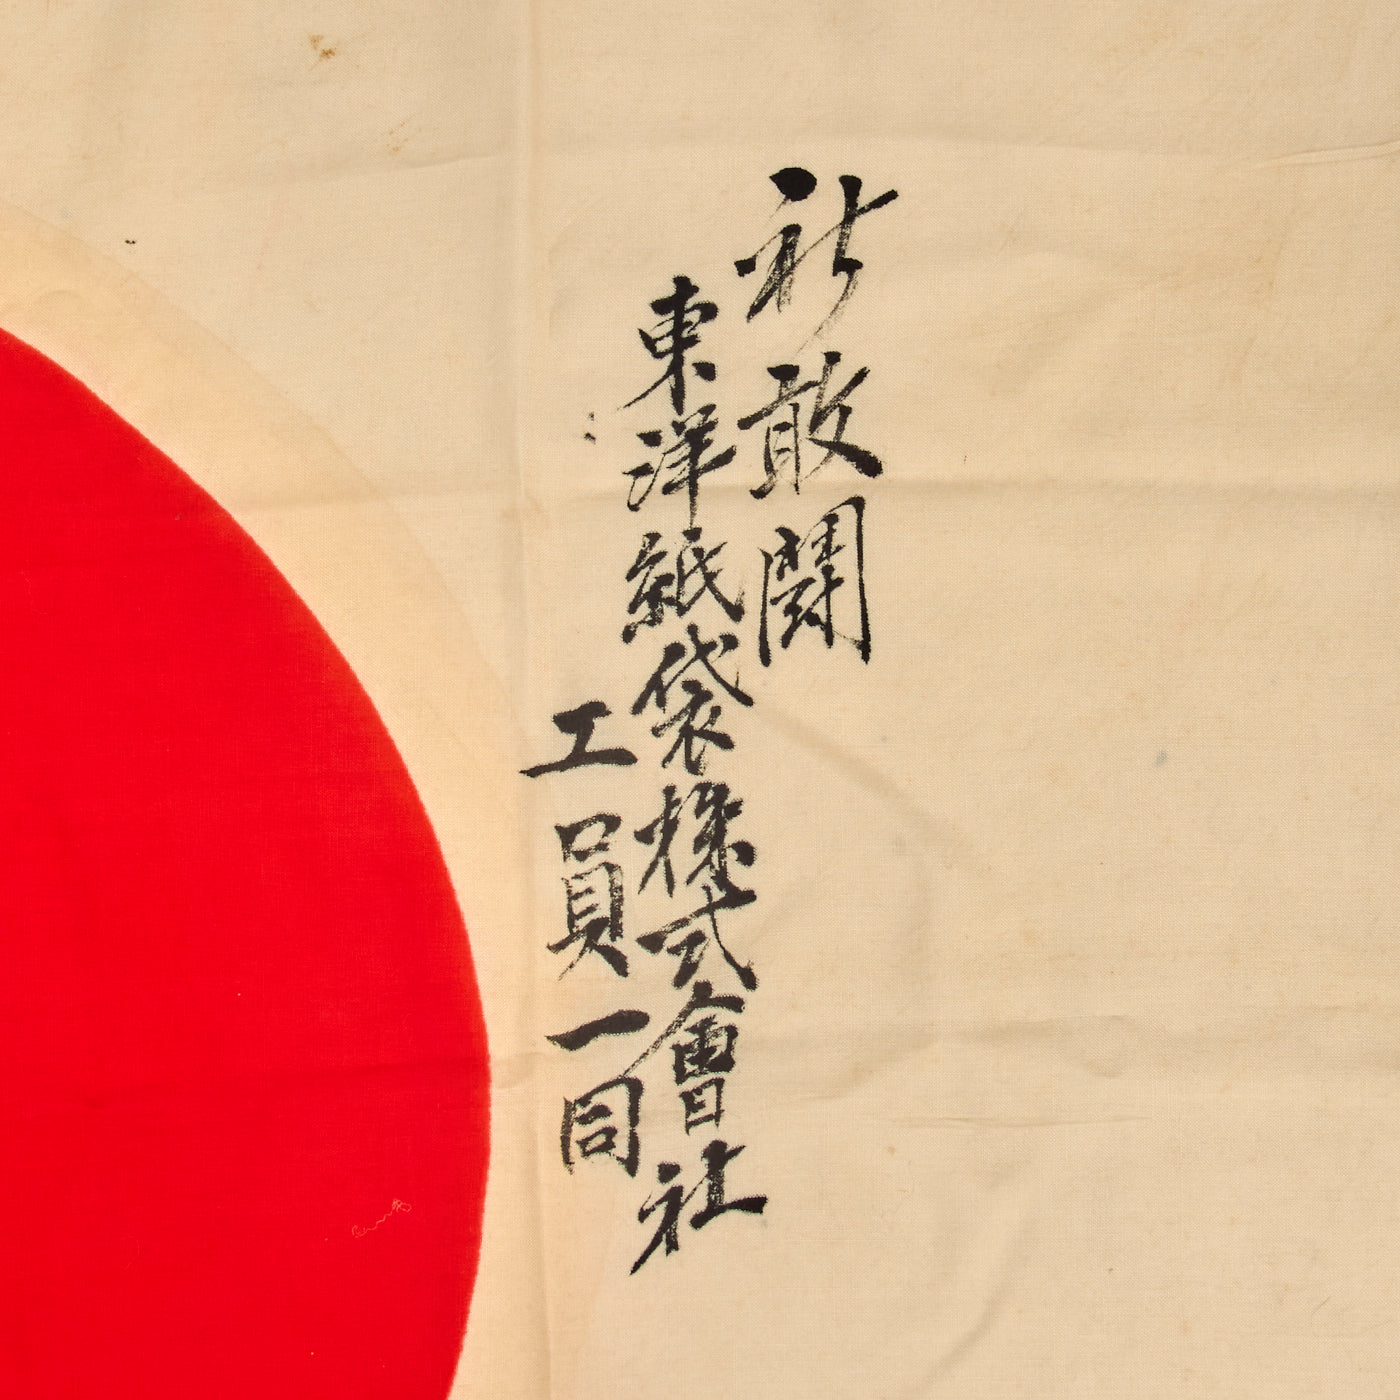 祈敢闘
東洋紙袋株式會社
工員一同